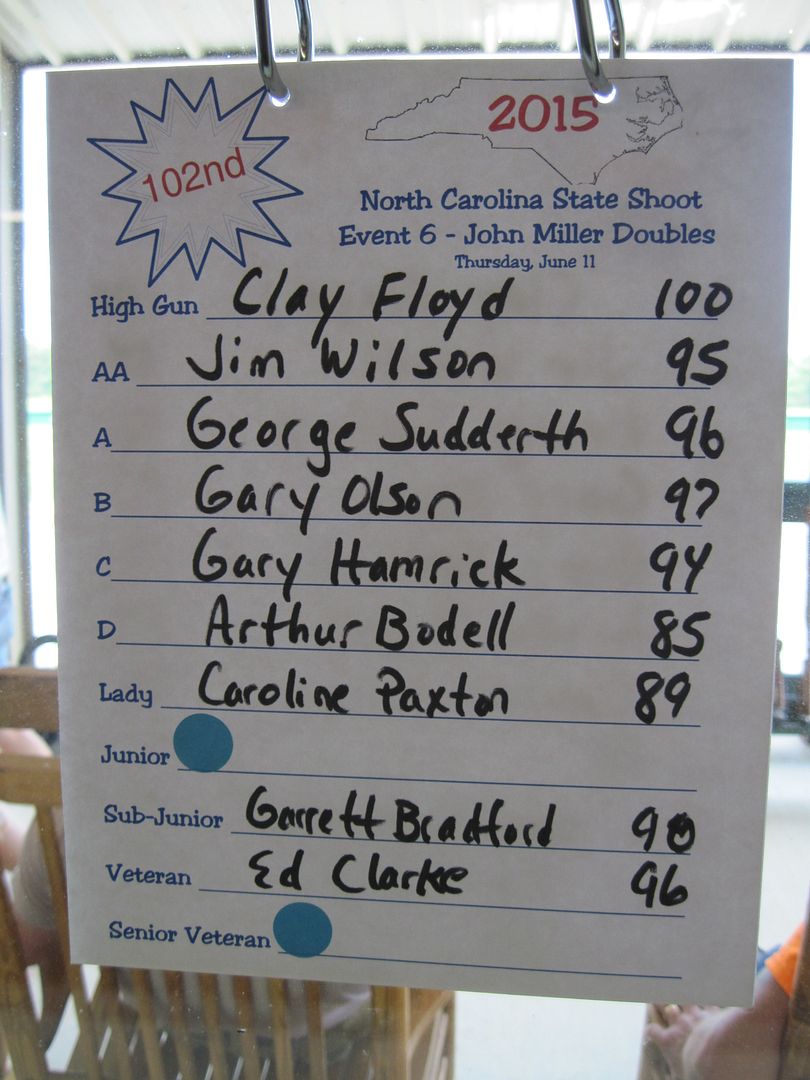 102nd
2015
North Carolina State Shoot
Event 6 - John Miller Doubles
Thursday, June 11
High Gun Clay Floyd 100
AA Jim Wilson 95
A George Sudderth 96
B Gary Olson 97
C Gary Hamrick 94
D Arthur Bodell 85
Lady Caroline Paxton 89
Junior
Sub-Junior Garrett Bradford 90
Veteran Ed Clarke 96
Senior Veteran